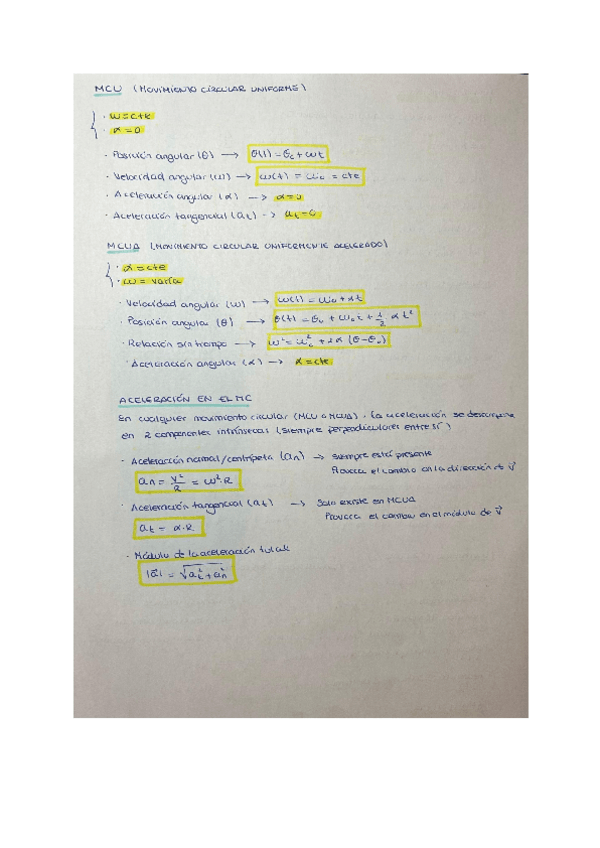 MCU (MOVIMIENTO CIRCULAR UNIFORME)
· ω = cte
· α = 0
· Posición angular (θ) → θ(t) = θ₀ + ωt
· Velocidad angular (ω) → ω(t) = ω₀ = cte
· Aceleración angular (α) → α = 0
· Aceleración tangencial (at) → at = 0
MCUA (MOVIMIENTO CIRCULAR UNIFORMEMENTE ACELERADO)
· α = cte
· ω = varía
· Velocidad angular (ω) → ω(t) = ω₀ + αt
· Posición angular (θ) → θ(t) = θ₀ + ω₀t + 1/2 αt²
· Relación sin tiempo → ω² = ω₀² + 2α (θ-θ₀)
· Aceleración angular (α) → α = cte
ACELERACIÓN EN EL MC
En cualquier movimiento circular (MCU o MCUA), la aceleración se descompone
en 2 componentes intrínsecas (siempre perpendiculares entre sí)
· Aceleración normal/centrípeta (an) → siempre está presente
Provoca el cambio en la dirección de v⃗
an = v²/R = ω²·R
· Aceleración tangencial (at) → Solo existe en MCUA
Provoca el cambio en el módulo de v⃗
at = α·R
· Módulo de la aceleración total:
|a⃗| = √(at² + an²)